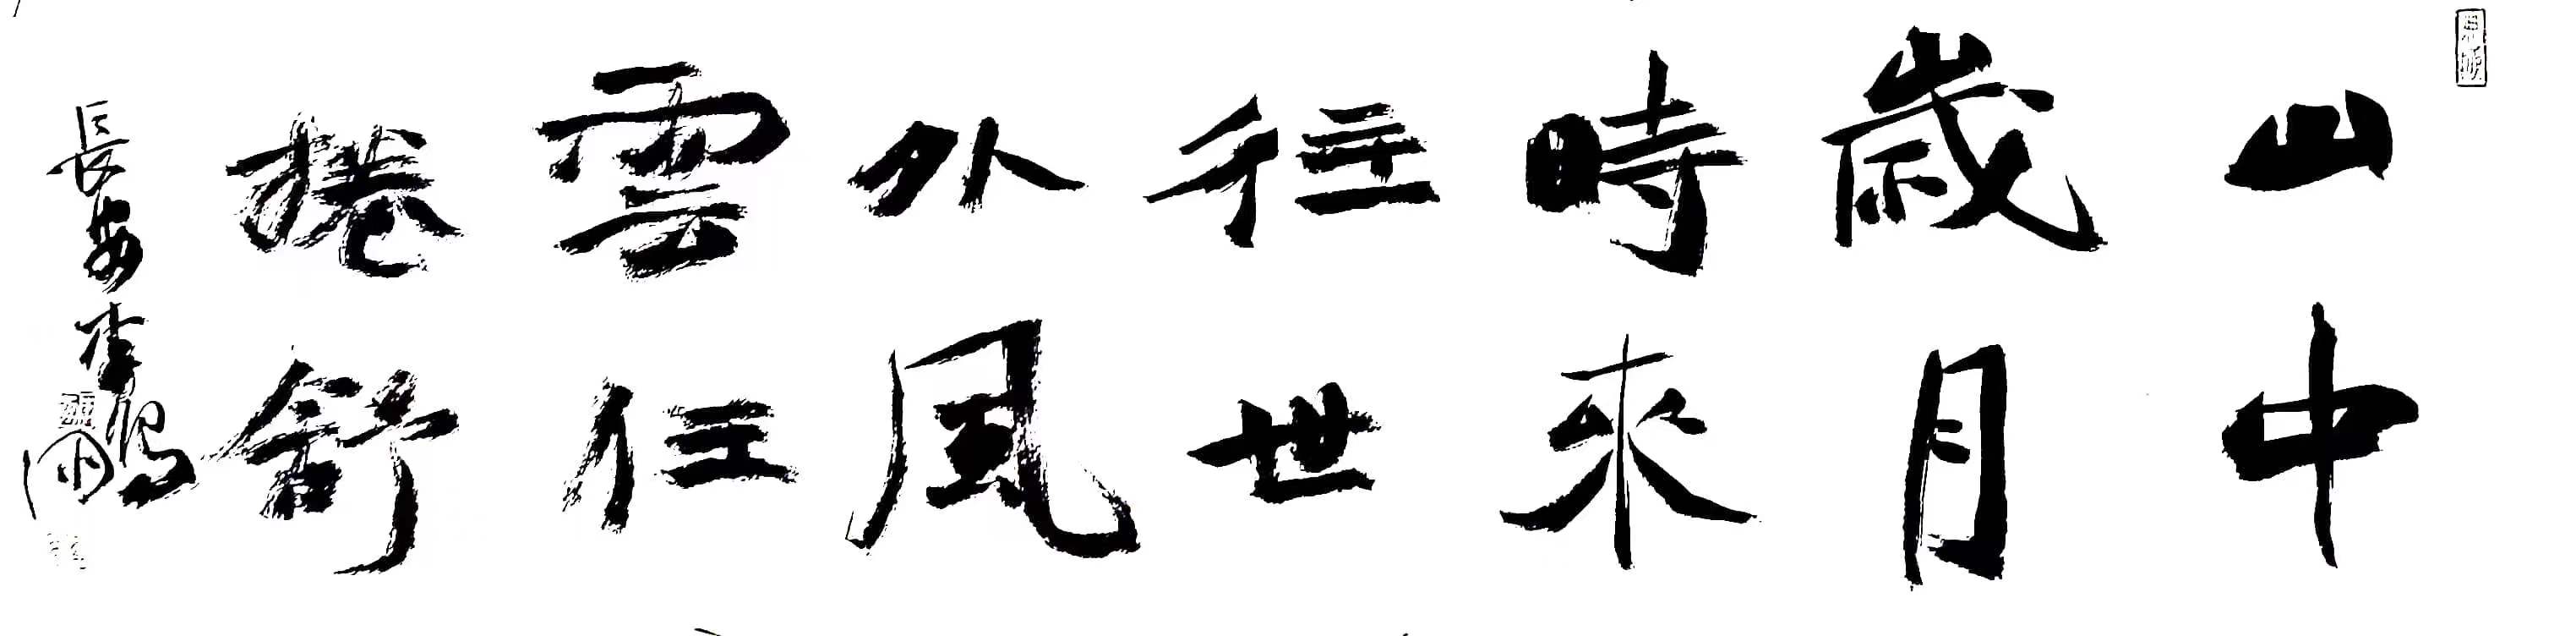 山中
歲月
時來
往世
外風
雲任
捲舒
長安李鵬